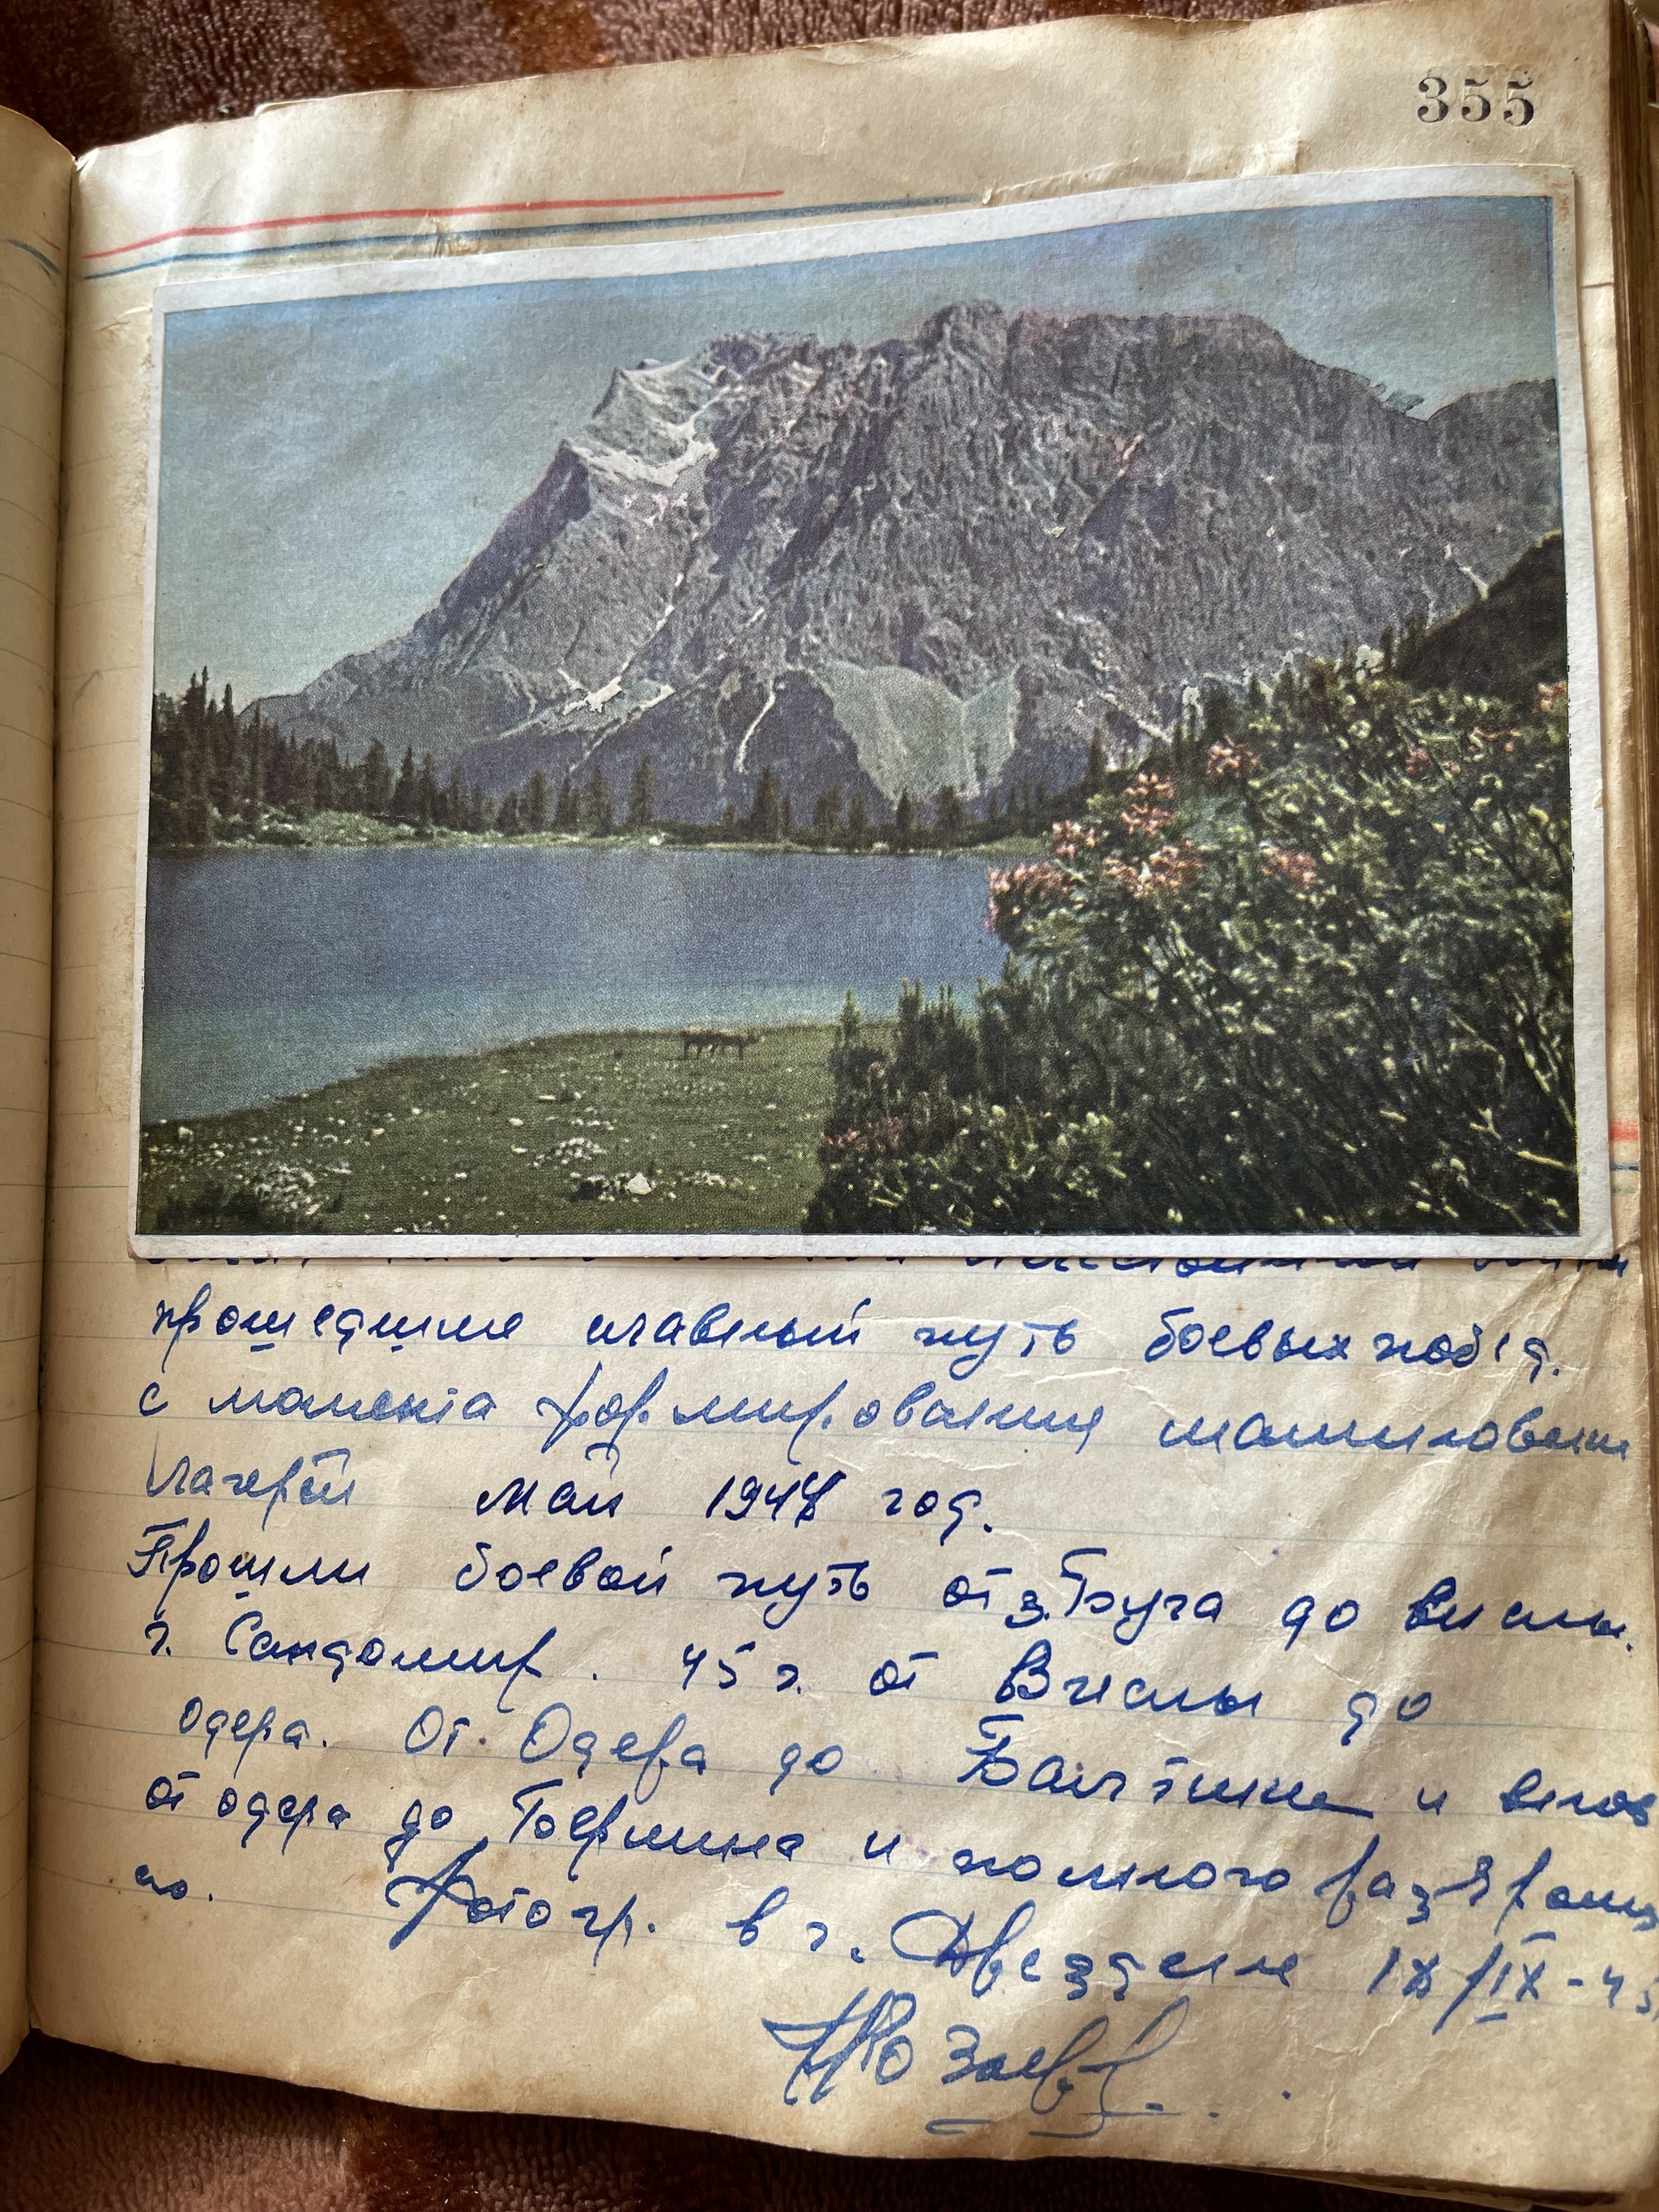 355
прошедшие славный путь боевых побед.
с момента формирования
лагерей май 1944 год.
Прошли боевой путь от з. Буга до Вислы.
г. Сандомир. 45 г. от Вислы до
Одера. От Одера до Балтики и вновь
от одера до Берлина и полного
но. Фотогр. в г. Дрездене IX-45